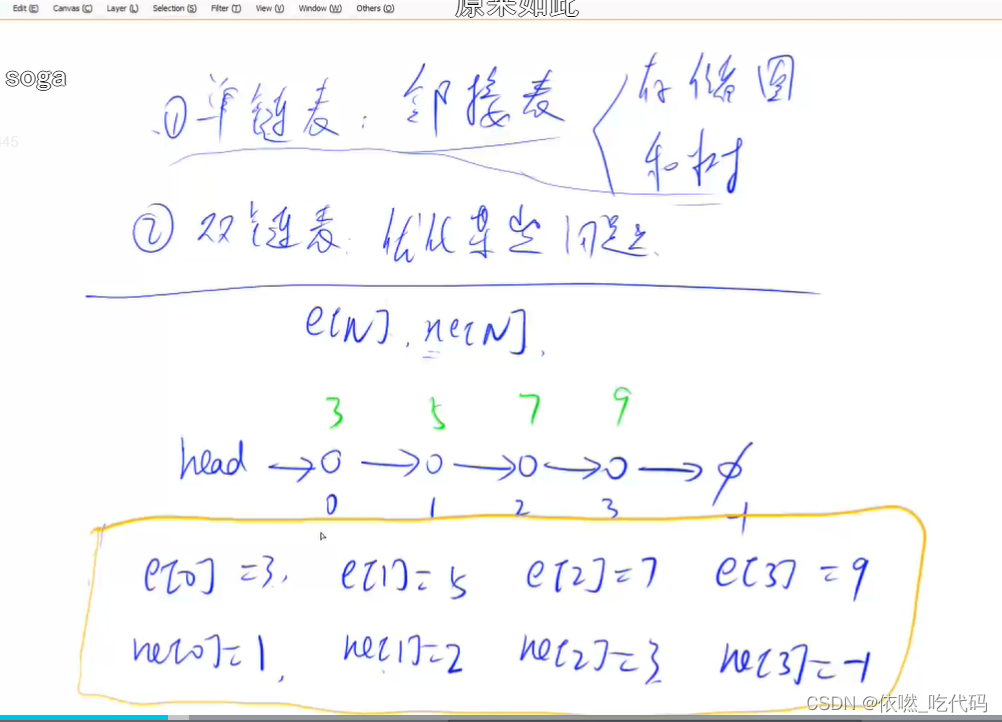 Edit (E) Canvas (C) Layer (L) Selection (S) Filter (T) View (V) Window (W) Others (O)
原来如此
soga
① 单链表: 邻接表 存储图
和树
② 双链表: 优化某些问题.
e[N], ne[N],
3 5 7 9
head → 0 → 0 → 0 → 0 → ∅
0 1 2 3 -1
e[0] =3, e[1]= 5 e[2]=7 e[3] =9
ne[0]=1, ne[1]=2 ne[2]=3 ne[3]=-1
CSDN @依燃_吃代码